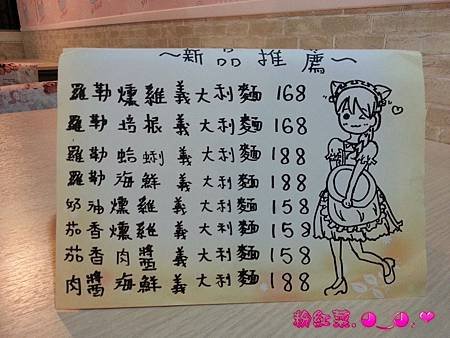 ~新品推薦~
羅勒燻雞義大利麵 168
羅勒培根義大利麵 168
羅勒蛤蜊義大利麵 188
羅勒海鮮義大利麵 188
奶油燻雞義大利麵 158
茄香燻雞義大利麵 158
茄香肉醬義大利麵 158
肉醬海鮮義大利麵 188
粉紅菓.